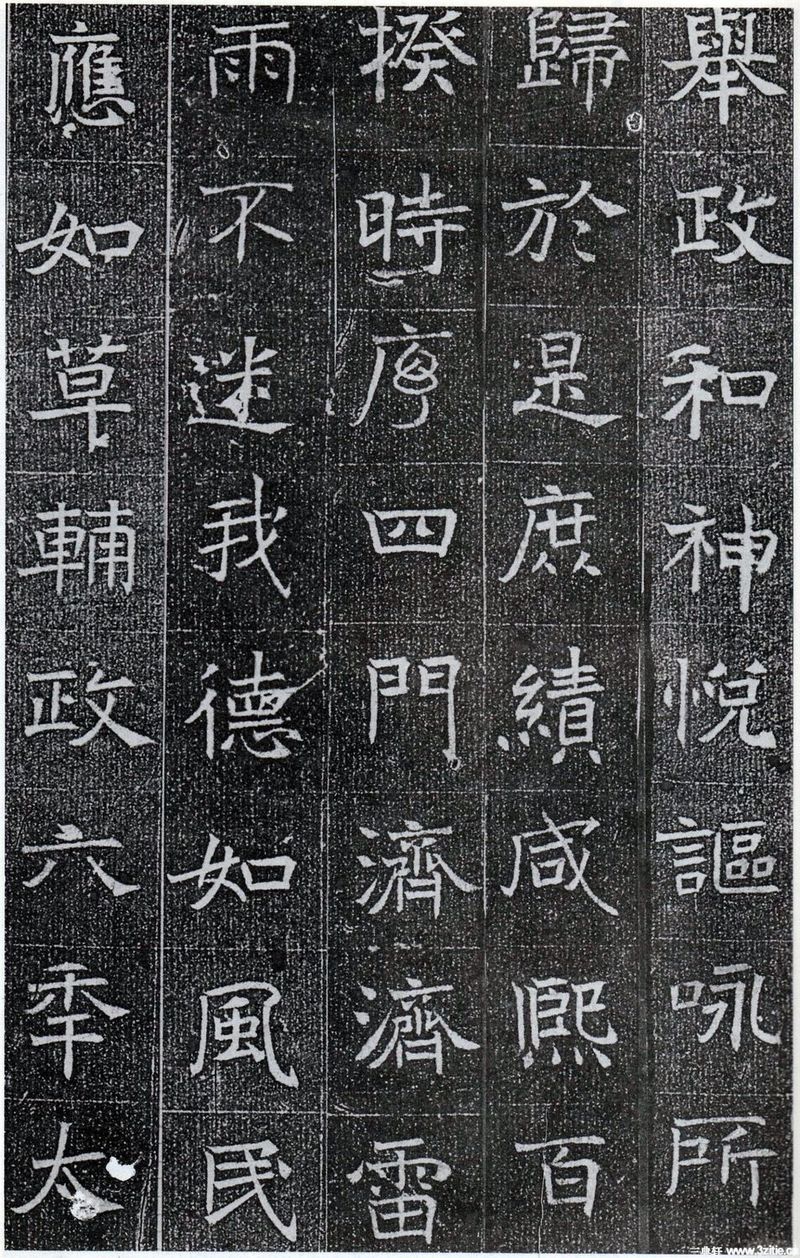 舉政和神悅謳詠所
歸於是庶績咸熙百
揆時序四門濟濟雷
雨不迷我德如風民
應如草輔政六年太
三典轩 www.3zitie.c